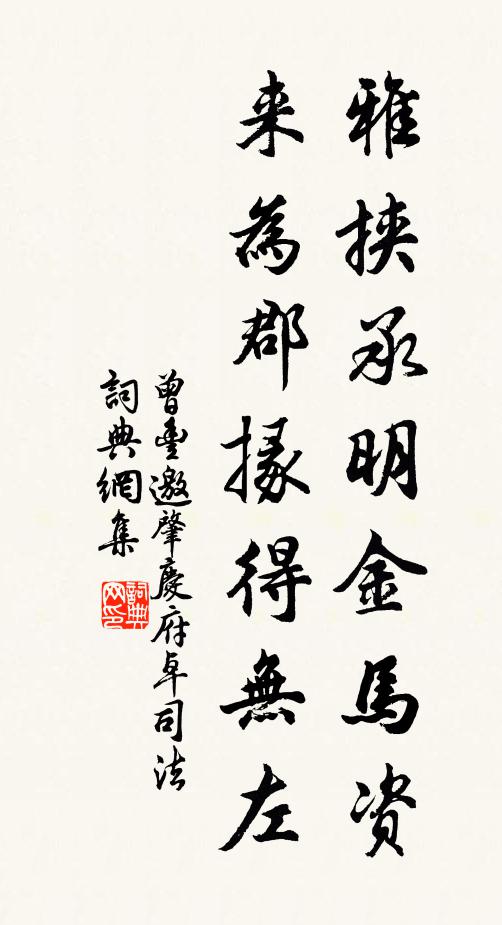 雅挟承明金馬资
来為郡掾得無左
曾豐邀肇慶府卓司法
詞典網集
詞典网印